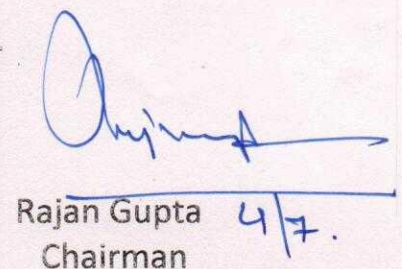 Rajan Gupta 4/7.
Chairman